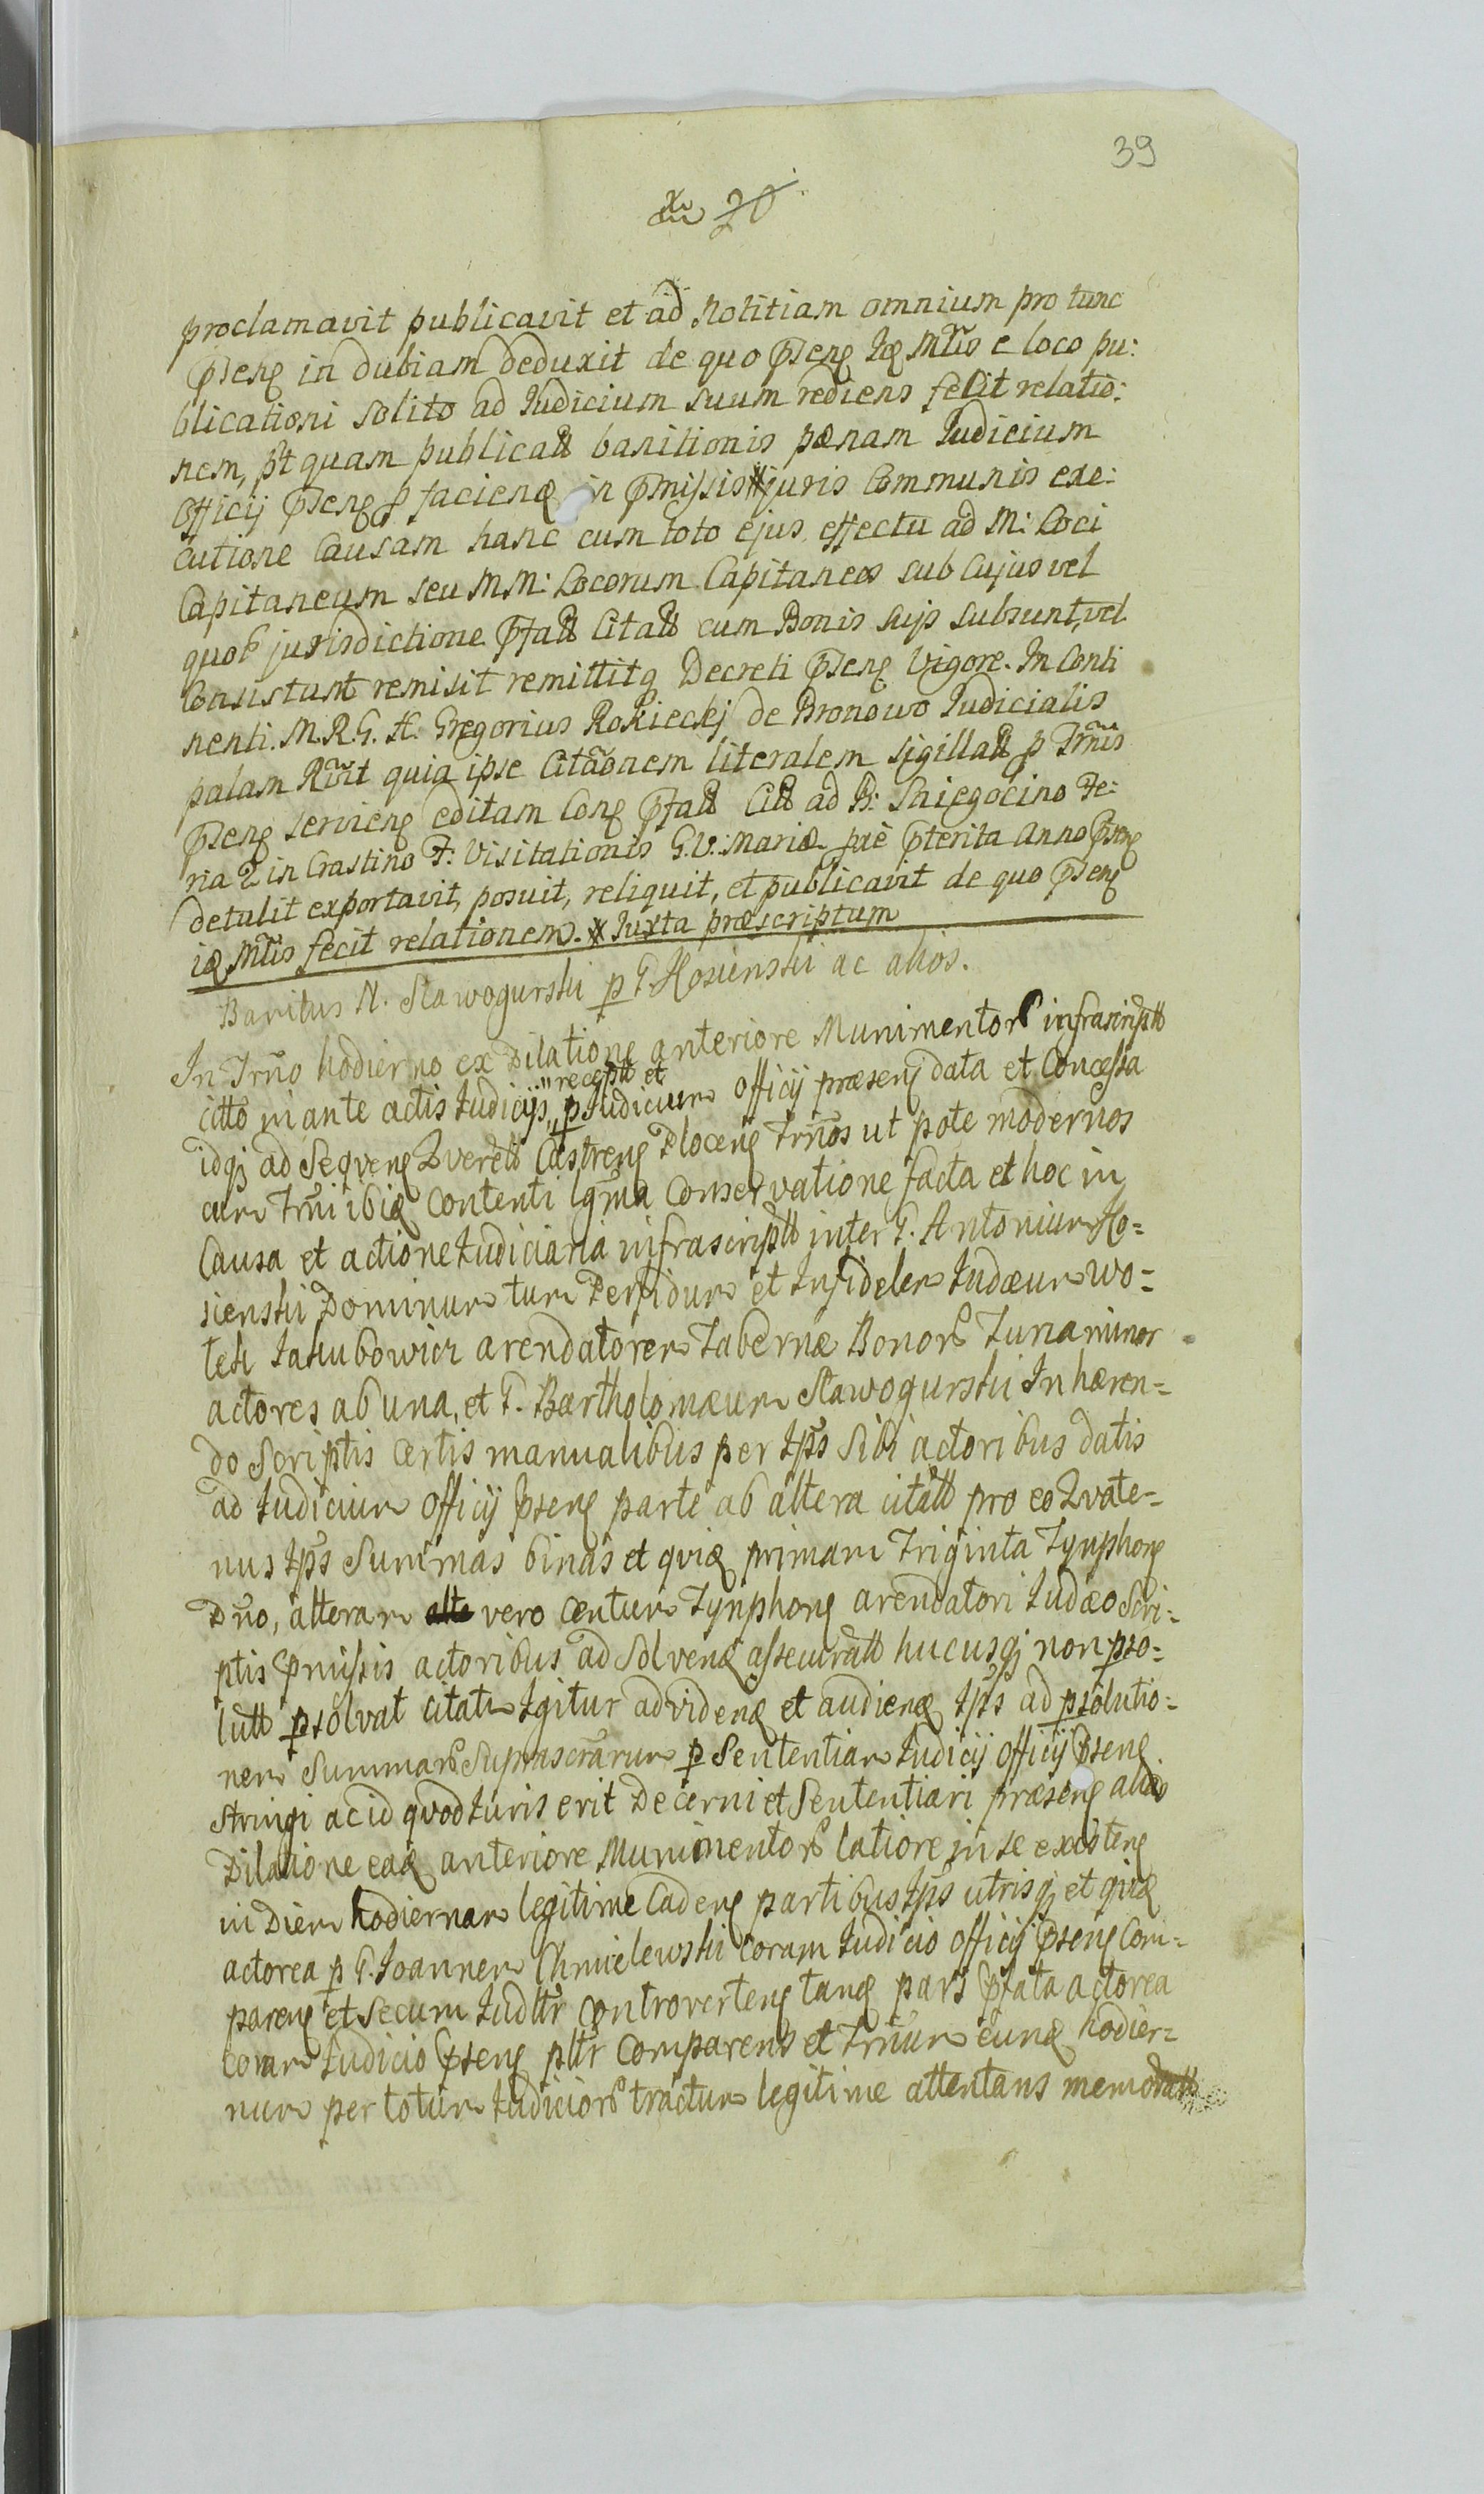 39
20
proclamavit publicavit et ad Notitiam omnium pro tunc
pseng in dubiam deduxit de quo pseng Iq Mtrio e loco pu:
blicationi solito ad Judicium suum rediens fecit relatio:
nem, pt quam publicatt banitionis pænam Judicium
Officij pseng p facienq in pmissis juris Communis exe:
cutione Causam hanc cum toto ejus effectu ad M: Loci
Capitaneum seu MM: Locorum Capitaneos sub Cujus vel
quoȓ jurisdictione pfatt Citatt cum Bonis suis subsunt, vel
Consistunt remisit remittitq Decreti pseng Vigore. In Conti
nenti. M.R.G. H. Gregorius Rokieckj de Bronowo Judicialis
palam Rivit quia ipse Citãonem literalem sigillatt p Trmis
pseng servieng editam Cong pfatt Citt ad B: Sniegocino Fe:
ria 2 in Crastino F: Visitationis G.V. Mariæ pñe pterita Anno pseng
detulit exportavit, posuit, reliquit, et publicavit de quo pseng
iq Mtris fecit relationem. Juxta præscriptum
Banitus N. Sławogurski p G. Hosienski ac alios.
In Trño hodierno ex Dilatione anteriore Munimentoȓ infrascriptt
citto in ante actis Judicijs, "receptt et p Judicium officij præseng data et Concessa
idqj ad Seqveng Qverett Castreng Ploceng Trños ut pote modernos
cum Trñi ibiq Contenti lgma Conservatione facta et hoc in
Causa et actione Judiciaria infrascriptt inter G. Antonium Ho=
sienski Dominum tum Perfidum et Infidelem Judæum Wo=
tek Jakubowicz arendatorem Tabernæ Bonoȓ Turia minor
actores ab una, et G. Bartholomæum Sławogurski Inhæren=
do Scriptis Certis manualibus per Ips̃ Sibi actoribus datis
ad Judicium Officij pseng parte ab altera citatt pro eo Qvate=
nus Ips̃ Summas binas et qviq primam Triginta Tynphong
Dño, alteram alte vero Centum Tynphong arendatori Judæo Scri=
ptis pmissis actoribus ad Solvenq assecuratt hucusqj non pso=
lutt psolvat citatum Igitur ad videnq et audienq Ips̃ ad psolutio=
nem Summaȓ Suprascrarum p Sententiam Judicij Officij pseng
stringi ac id qvod Juris erit Decerni et Sententiari præseng alias
Dilatione eaq anteriore Munimentoȓ latiore in se existeng
in Diem hodiernam legitime Cadeng partibus Ips̃ utrisqj et qviq
actorea p G. Joannem Chmielewski Coram Judicio Officij pseng Com=
pareng et secum Judltr Controverteng tanq pars pfata actorea
Coram Judicio pseng pltr Comparens et Trñum eunq hodier=
num per totum Judicioȓ tractum legitime attentans memoratt